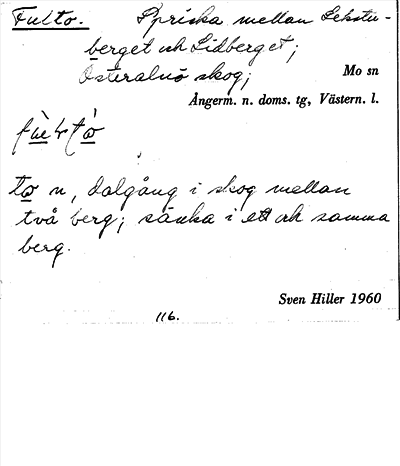 Fulto. Spriska mellan Lekstu-
berget och Lidberget;
Österalnö skog; Mo sn
Ångerm. n. doms. tg, Västern. l.
to n, dalgång i skog mellan
två berg; sänka i ett och samma
berg.
Sven Hiller 1960
116.